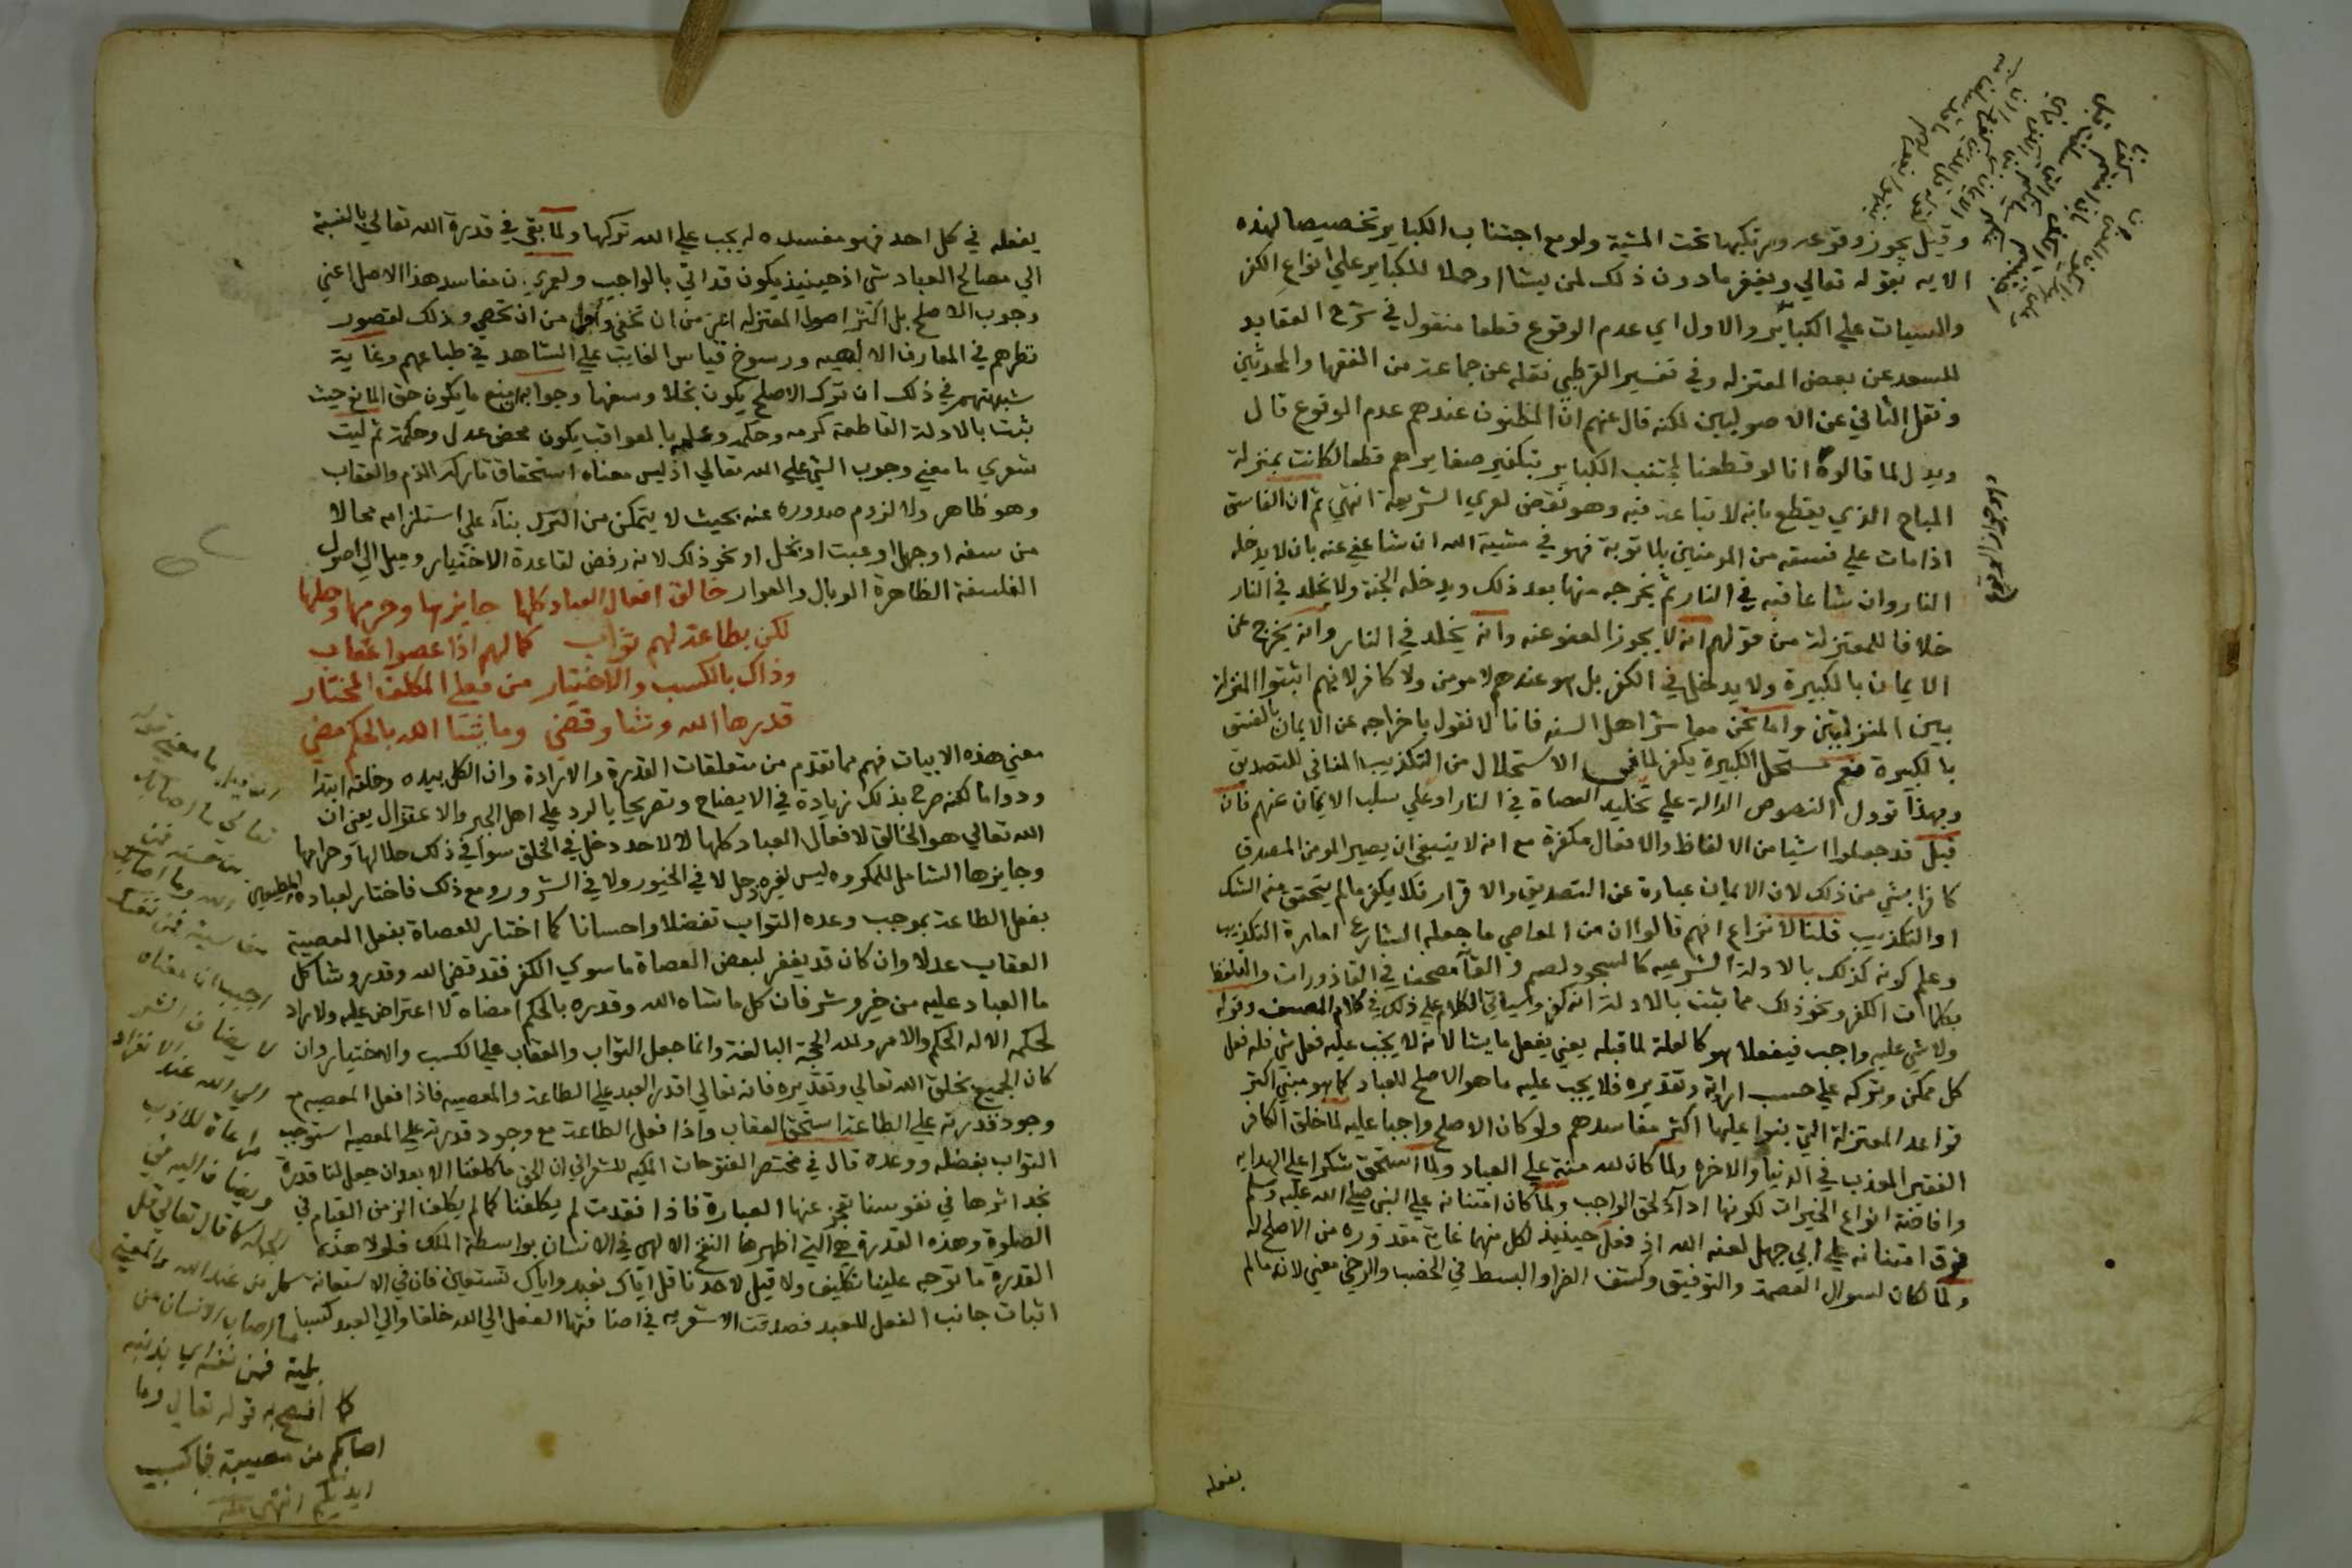 وقيل يجوز وقوعه ومرتكبها تحت المشية ولو مع اجتناب الكباير تخصيصا لهذه
الايه بقوله تعالي ويغفر مادون ذلك لمن يشا او حملا للكباير علي انواع الكفر
والسيات علي الكباير والاول اي عدم الوقوع قطعا منقول في شرح العقايد
للسعد عن بعض المعتزله وفي تفسير القرطبي نقله عن جماعة من الفقها والمحدثين
ونقل الثاني عن الاصوليين لكنه قال عنهم ان المظنون عندهم عدم الوقوع قال
ويدل لما قالوه انا لو قطعنا لمجتنب الكباير بتكفير صغايرهم قطعا لكانت بمنزلة
المباح الذي يقطع بانه لا تباعة فيه وهو نقض لعري الشريعة انتهي ثم ان الفاسق
اذا مات علي فسقه من المومنين بلا توبة فهو في مشية الله ان شا عفي عنه بان لا يدخله
النار وان شا عاقبه في النار ثم يخرجه منها بعد ذلك ويدخله الجنة ولا يخلد في النار
خلافا للمعتزلة من قولهم انه لا يجوز العفو عنه وانه يخلد في النار وانه يخرج عن
الايمان بالكبيرة ولا يدخل في الكفر بل هو عندهم لا مومن ولا كافر لانهم اثبتوا المنزلة
بين المنزلتين واما نحن معاشر اهل السنه فانا لا نقول باخراجه عن الايمان بالفسق
بالكبيرة نعم مستحل الكبيرة يكفر لما في الاستحلال من التكذيب المنافي للتصديق
وبهذا توول النصوص الدالة علي تخليد العصاة في النار او علي سلب الايمان عنهم فان
قيل قد جعلوا اشيا من الالفاظ والافعال مكفرة مع انه لا ينبغي ان يصير المومن المصدق
كافرا بشي من ذلك لان الايمان عبارة عن التصديق والاقرار فلا يكفر ما لم يتحقق منه الشك
او التكذيب قلنا لا نزاع انهم قالوا ان من المعاصي ما جعله الشارع امارة التكذيب
وعلم كونه كذلك بالادلة الشرعيه كالسجود لصنم والقا مصحف في القاذورات والتلفظ
بكلمات الكفر ونحو ذلك مما يثبت بالادلة انه كفر وسياتي الكلام علي ذلك في كلام المصنف وقوله
ولا شي عليه واجب فيفعلا هو كالعلة لما قبله يعني يفعل ما يشا لانه لا يجب عليه فعل شي فله فعل
كل ممكن وتركه علي حسب ارادته وتقديره فلا يجب عليه ما هو الاصلح للعباد كما هو مبني اكثر
قواعد المعتزلة التي بنوا عليها اكثر مفاسدهم ولو كان الاصلح واجبا عليه لما خلق الكافر
الفقير المعذب في الدنيا والاخره ولما كان لله منة علي العباد ولما استحق شكرا علي الهدايه
وافاضة انواع الخيرات لكونها اداء لحق الواجب ولما كان امتنانه علي النبي صلي الله عليه وسلم
فوق امتنانه علي ابي جهل لعنه الله اذ فعل حينيذ لكل منهما غاية مقدوره من الاصلح له
ولما كان لسوال العصمة والتوفيق وكشف الضرا والبسط في الخصب والرخي معني لانه ما لم
يفعله
يفعله في كل احد فهو مفسده له يجب علي الله تركها ولما بقي في قدرة الله تعالي بالنسبة
الي مصالح العباد شي اذ حينيذ يكون قد اتي بالواجب ولعمري ان مفاسد هذا الاصل اعني
وجوب الاصلح بل اكثر اصول المعتزله اظهر من ان تخفي واكثر من ان تحصي وذلك لقصور
نظرهم في المعارف الالهيه ورسوخ قياس الغايب علي الشاهد في طباعهم وغاية
شبهتهم في ذلك ان ترك الاصلح يكون بخلا وسفها وجوابه ان منع ما يكون حق المانع حيث
ثبت بالادلة القاطعة كرمه وحكمه وعلمه بالعواقب يكون محض عدل وحكمة ثم ليت
شعري ما معني وجوب الشي علي الله تعالي اذ ليس معناه استحقاق تاركه الذم والعقاب
وهو ظاهر ولا لزوم صدوره عنه بحيث لا يتمكن من الترك بناء علي استلزامه محالا
من سفه او جهل او عبث او بخل او نحو ذلك لانه رفض لقاعدة الاختيار وميل الي اصول
الفلسفة الظاهرة الوبال والعوار خالق افعال العباد كلها جايزها وحرمها وحلها
لكن بطاعة لهم ثواب كما لهم اذا عصوا عقاب
وذاك بالكسب والاختيار من فعل المكلف المختار
قدرها الله وشا وقضي وما يشا الله بالحكم مضي
معني هذه الابيات فهم مما تقدم من متعلقات القدرة والارادة وان الكل بيده وخلقه ابتدا
ودواما لكنه صرح بذلك زيادة في الايضاح وتصريحا بالرد علي اهل الجبر والاعتزال يعني ان
الله تعالي هو الخالق لافعال العباد كلها لا لاحد دخل في الخلق سواء في ذلك حلالها وحرامها
وجايزها الشامل للمكروه ليس لغيره دخل لا في الخيور ولا في الشرور ومع ذلك فاختار لعباده المطيعين
بفعل الطاعة بموجب وعده الثواب تفضلا واحسانا كما اختار للعصاة بفعل المعصية
العقاب عدلا وان كان قد يغفر لبعض العصاة ما سوي الكفر فقد قضي الله وقدر وشا كل
ما العباد عليه من خير وشر فان كل ما شاه الله وقدره بالحكم امضاه لا اعتراض عليه ولا راد
لحكمه الا له الحكم والامر ولله الحجة البالغة وانما جعل الثواب والعقاب علي الكسب والاختيار وان
كان الجميع بخلق الله تعالي وتقديره فانه تعالي اقدر العبد علي الطاعة والمعصيه فاذا فعل المعصيه مع
وجود قدرته علي الطاعة استحق العقاب واذا فعل الطاعة مع وجود قدرته علي المعصيه استوجب
الثواب بفضله ووعده قال في مختصر الفتوحات المكيه للشعراني ان الحق ما كلفنا الا بعد ان جعل لنا قدرة
نجد اثرها في نفوسنا تعجز عنها العبارة فاذا فقدت لم يكلفنا كما لم يكلف الزمن القيام في
الصلوة وهذه القدرة هي التي اظهرها النفخ الالهي في الانسان بواسطة الملك فلولا هذه
القدرة ما توجه علينا تكليف ولا قيل لاحدنا قل اياك نعبد واياك نستعين فان في الاستعانة
اثبات جانب الفعل للعبد فصدقت الاشعريه في اضافتها الفعل الي الله خلقا والي العبد كسبا
ان قيل ما معني قوله
تعالي ما اصابك
من حسنة فمن
الله وما اصابك
من سيية فمن نفسك
اجيب ان معناه
لا يضاف الشر
الي الله عند الانفراد
مراعاة للادب
ويضاف اليه في
الجمله كما قال تعالي قل
كل من عند الله والمعني
ما اصاب الانسان من
بلية فمن نفسه اي بذنبه
كما افصح به قوله تعالي وما
اصابكم من مصيبة فبما كسبت
ايديكم انتهي